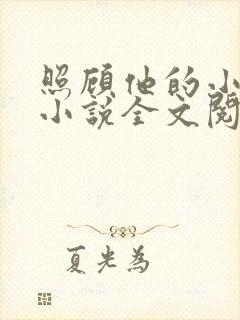 照顾他的小
小说全文阅
夏光为